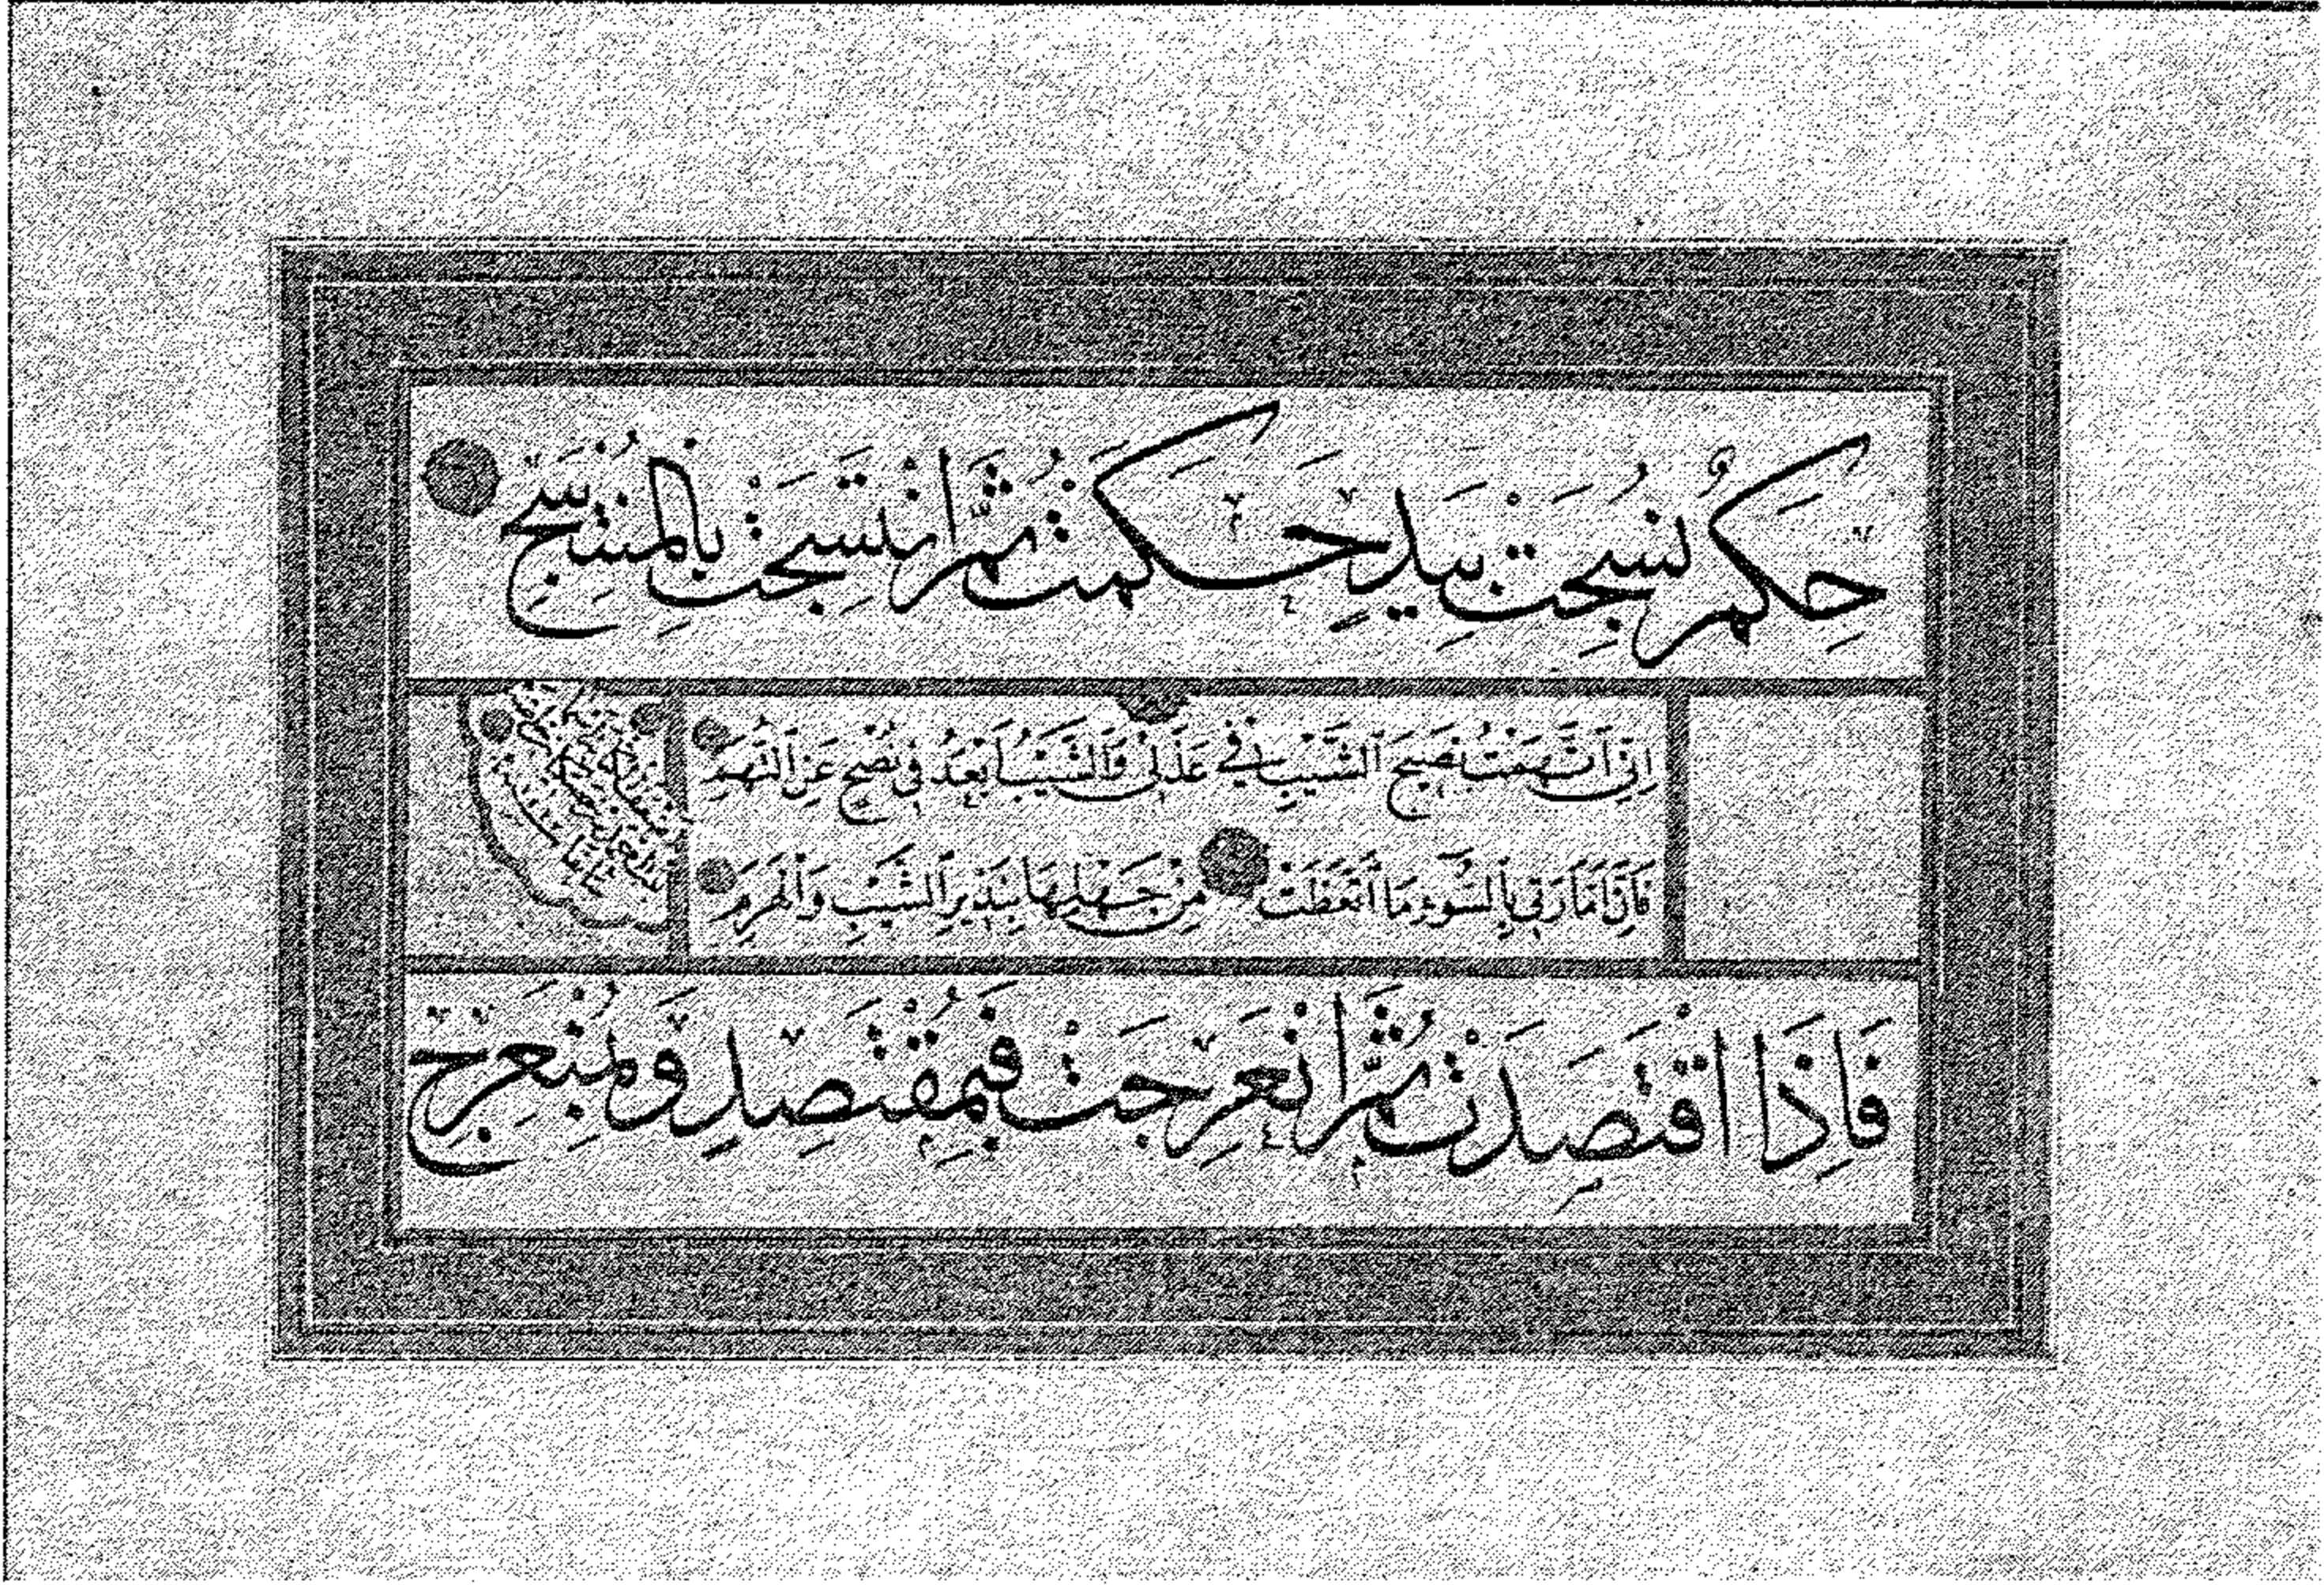 حِكَمٌ نُسِجَتْ بِيَدٍ حَكَمَتْ ثُمَّ انْتَسَجَتْ بِالْمُنْتَسِجِ
اِنِّي اتَّهَمْتُ نَصِيحَ الشَّيْبِ فِي عَذَلِي وَالشَّيْبُ اَبْعَدُ فِي نُصْحٍ عَنِ التُّهَمِ
فَاِنَّ اَمَّارَتِي بِالسُّوءِ مَا اتَّعَظَتْ مِنْ جَهْلِهَا بِنَذِيرِ الشَّيْبِ وَالْهَرَمِ
فَاِذَا اقْتَصَدَتْ ثُمَّ انْعَرَجَتْ فَبِمُقْتَصِدٍ وَبِمُنْعَرِجِ